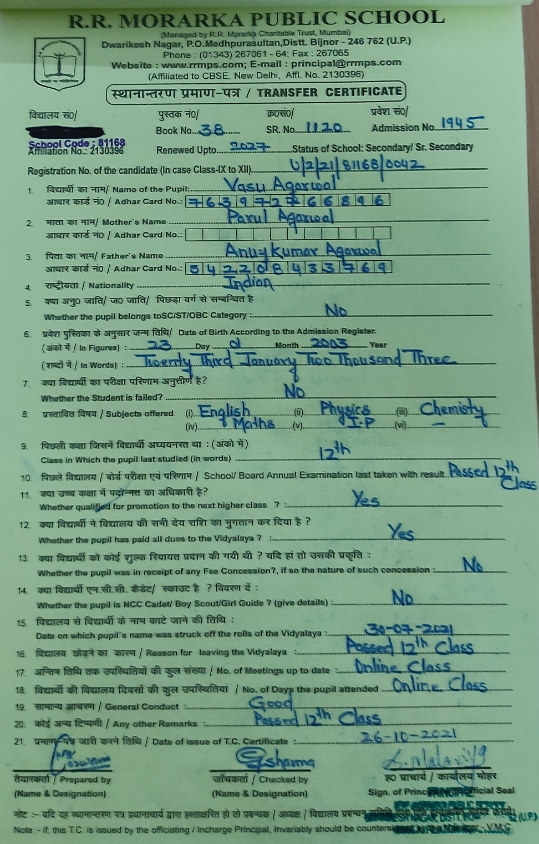 R.R. MORARKA PUBLIC SCHOOL
(Managed by R.R. Morarka Charitable Trust, Mumbai)
Dwarikesh Nagar, P.O.Medhpurasultan,Distt. Bijnor - 246 762 (U.P.)
Phone : (01343) 267061 - 64; Fax : 267065
Website : www.rrmps.com; E-mail : principal@rrmps.com
(Affiliated to CBSE, New Delhi, Affl. No. 2130396)
स्थानान्तरण प्रमाण-पत्र / TRANSFER CERTIFICATE
विद्यालय सं०/ पुस्तक नं०/ क्र०सं०/ प्रवेश सं०/
Book No. 38 SR. No. 1120 Admission No. 1945
School Code : 81168
Affiliation No.: 2130396 Renewed Upto 2027 Status of School: Secondary/ Sr. Secondary
Registration No. of the candidate (In case Class-IX to XII) U/2/21/81168/0042
1. विद्यार्थी का नाम/ Name of the Pupil: Vasu Agarwal
आधार कार्ड नं० / Adhar Card No.: 763972766896
2. माता का नाम/ Mother's Name Parul Agarwal
आधार कार्ड नं० / Adhar Card No.:
3. पिता का नाम/ Father's Name Anuj Kumar Agarwal
आधार कार्ड नं० / Adhar Card No.: 542208433769
4. राष्ट्रीयता / Nationality Indian
5. क्या अनु० जाति/ ज० जाति/ पिछड़ा वर्ग से सम्बन्धित है
Whether Pupil belongs toSC/ST/OBC Category : No
6. प्रवेश पुस्तिका के अनुसार जन्म तिथि/ Date of Birth According to the Admission Register.
(अंको में / In Figures) : 23 Day 01 Month 2003 Year
(शब्दों में / In Words) Twenty Third January Two Thousand Three
7. क्या विद्यार्थी का परीक्षा परिणाम अनुत्तीर्ण है?
Whether the Student is failed? No
8. प्रस्तावित विषय / Subjects offered (i). English (ii) Physics (iii) Chemisty
(iv) Maths (v) I.P (vi) –
9. पिछली कक्षा जिसमें विद्यार्थी अध्ययनरत था : (अंको में)
Class in Which the pupil last studied (in words) 12th
10. पिछले विद्यालय / बोर्ड परीक्षा एवं परिणाम / School/ Board Annual Examination last taken with result. Passed 12th Class
11. क्या उच्च कक्षा में पदोन्नत का अधिकारी है?
Whether qualified for promotion to the next higher class ? : Yes
12. क्या विद्यार्थी ने विद्यालय की सभी देय राशि का भुगतान कर दिया है ?
Whether the pupil has paid all dues to the Vidyalaya ? : Yes
13. क्या विद्यार्थी को कोई शुल्क रियायत प्रदान की गयी थी ? यदि हां तो उसकी प्रकृति :
Whether the pupil was in receipt of any Fee Concession?, if so the nature of such concession : No
14. क्या विद्यार्थी एन.सी.सी. कैडेट/ स्काउट है ? विवरण दें :
Whether the pupil is NCC Cadet/ Boy Scout/Girl Guide ? (give details) : No
15. विद्यालय से विद्यार्थी के नाम काटे जाने की तिथि :
Date on which pupil's name was struck off the rolls of the Vidyalaya : 30-07-2021
16. विद्यालय छोड़ने का कारण / Reason for leaving the Vidyalaya : Passed 12th Class
17. अन्तिम तिथि तक उपस्थितियों की कुल संख्या / No. of Meetings up to date : Online Class
18. विद्यार्थी की विद्यालय दिवसों की कुल उपस्थितियां / No. of Days the pupil attended Online Class
19. सामान्य आचरण / General Conduct : Good
20. कोई अन्य टिप्पणी / Any other Remarks : Passed 12th Class
21. प्रमाण पत्र जारी करने तिथि / Date of issue of T.C. Certificate : 26-10-2021
तैयारकर्ता / Prepared by जाँचकर्ता / Checked by ह० प्राचार्य / कार्यालय मोहर
(Name & Designation) (Name & Designation) Sign. of Official Seal
नोट :- यदि यह स्थानान्तरण पत्र प्रधानाचार्य द्वारा हस्ताक्षरित हो तो प्रबन्धक / अध्यक्ष / विद्यालय प्रबन्धन
Note :- if this, T.C. is issued by the officiating / Incharge Principal, Invariably should be V.M.C.